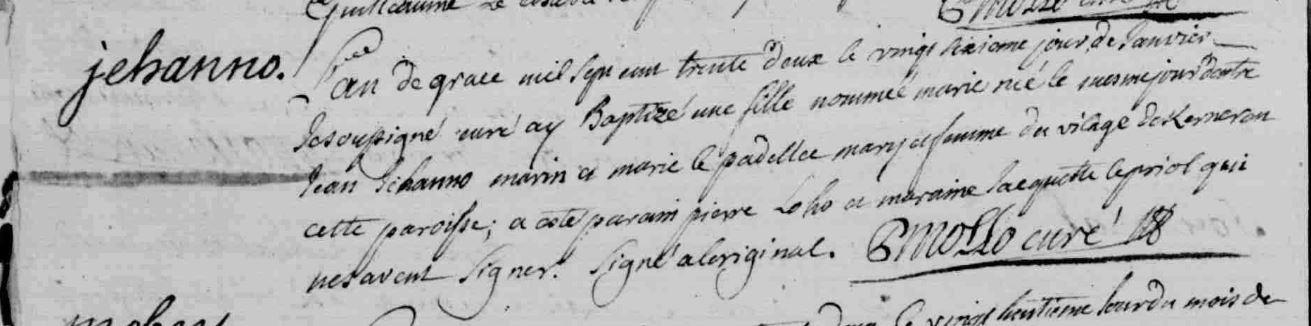 Guillaume Le
P Mollo curé
jehanno.
L'an de grace mil sept cent trente deux le vingt sixieme jour de Janvier
Je soussigné curé ay Baptizé une fille nommée marie née le mesme jour d'entre
Jean Jehanno marin et marie le padellec mary et femme du vilage de Kerneran
cette paroisse; a esté parain pierre Loho et maraine Jacquette le priol qui
ne savent signer. Signé a loriginal. P Mollo curé
le vingt huitieme jour du mois de